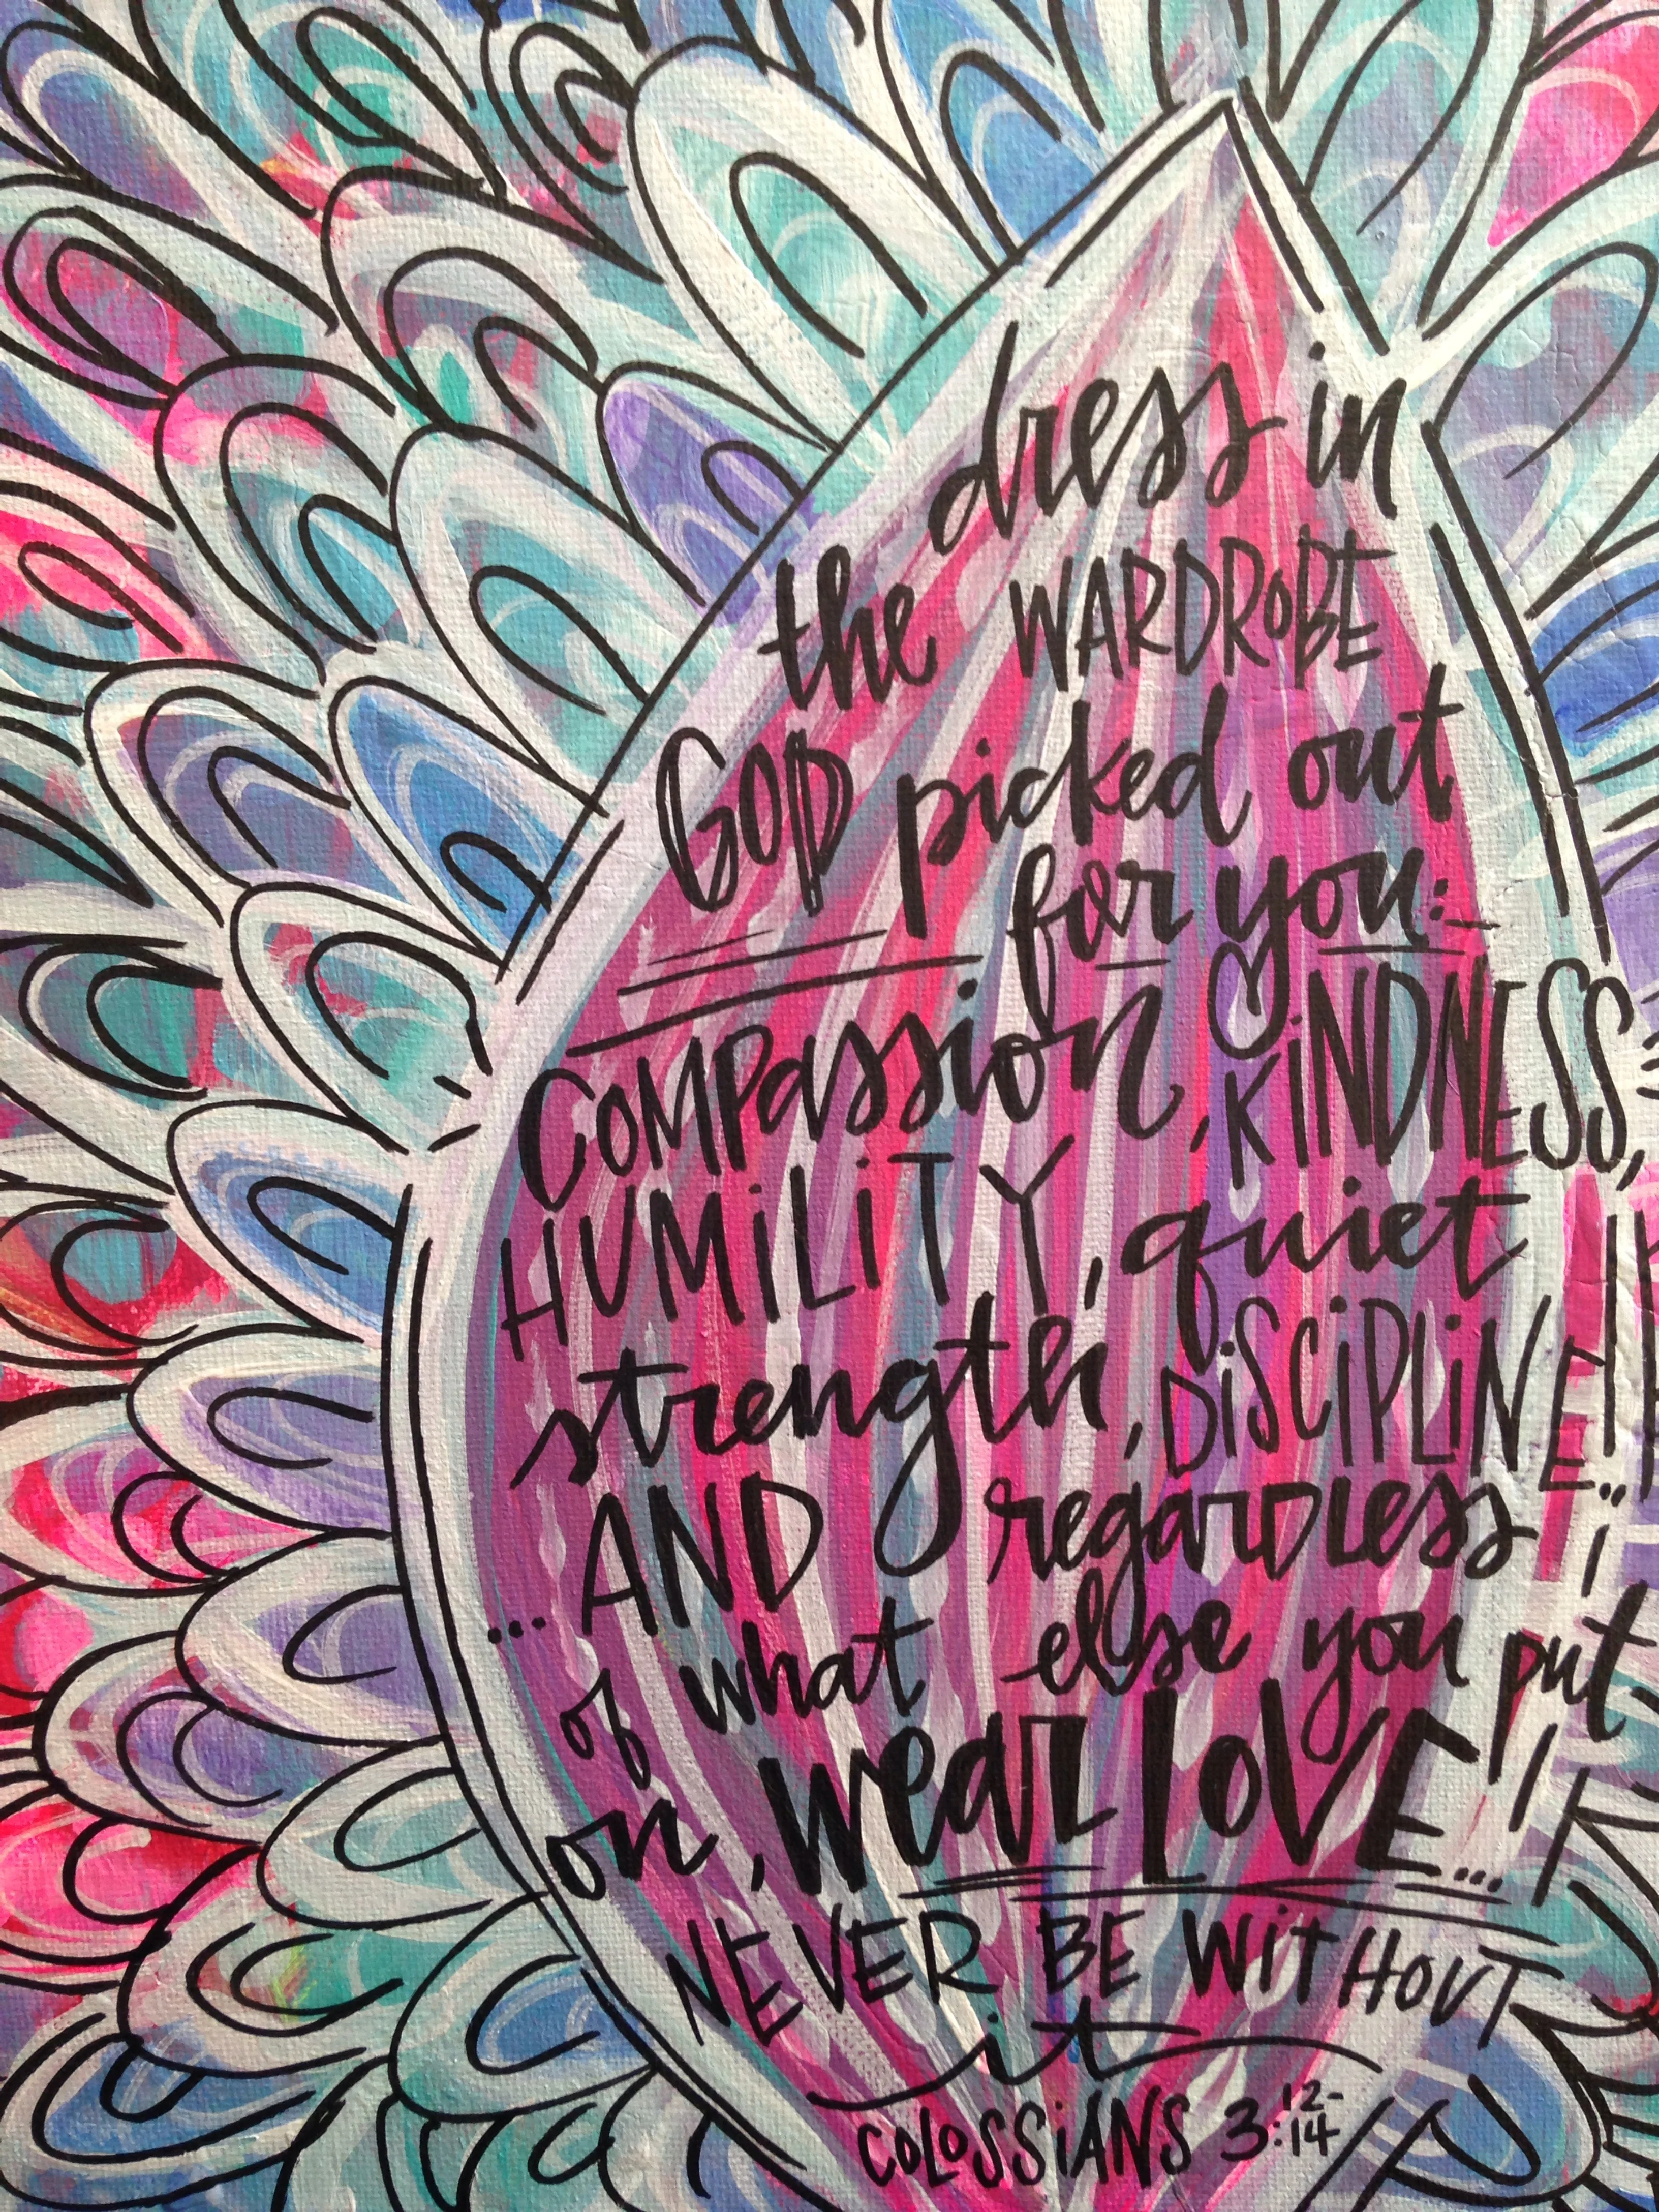 dress in
the WARDROBE
GOD picked out
for you:
COMPassion, KiNDNESS,
HUMiLiTY, quiet
strength, DiSCiPLiNE!!..
...AND regardless
of what else you put
on, wear LOVE...!!
NEVER BE WiTHOUT
it
COLOSSiANS 3:12-14